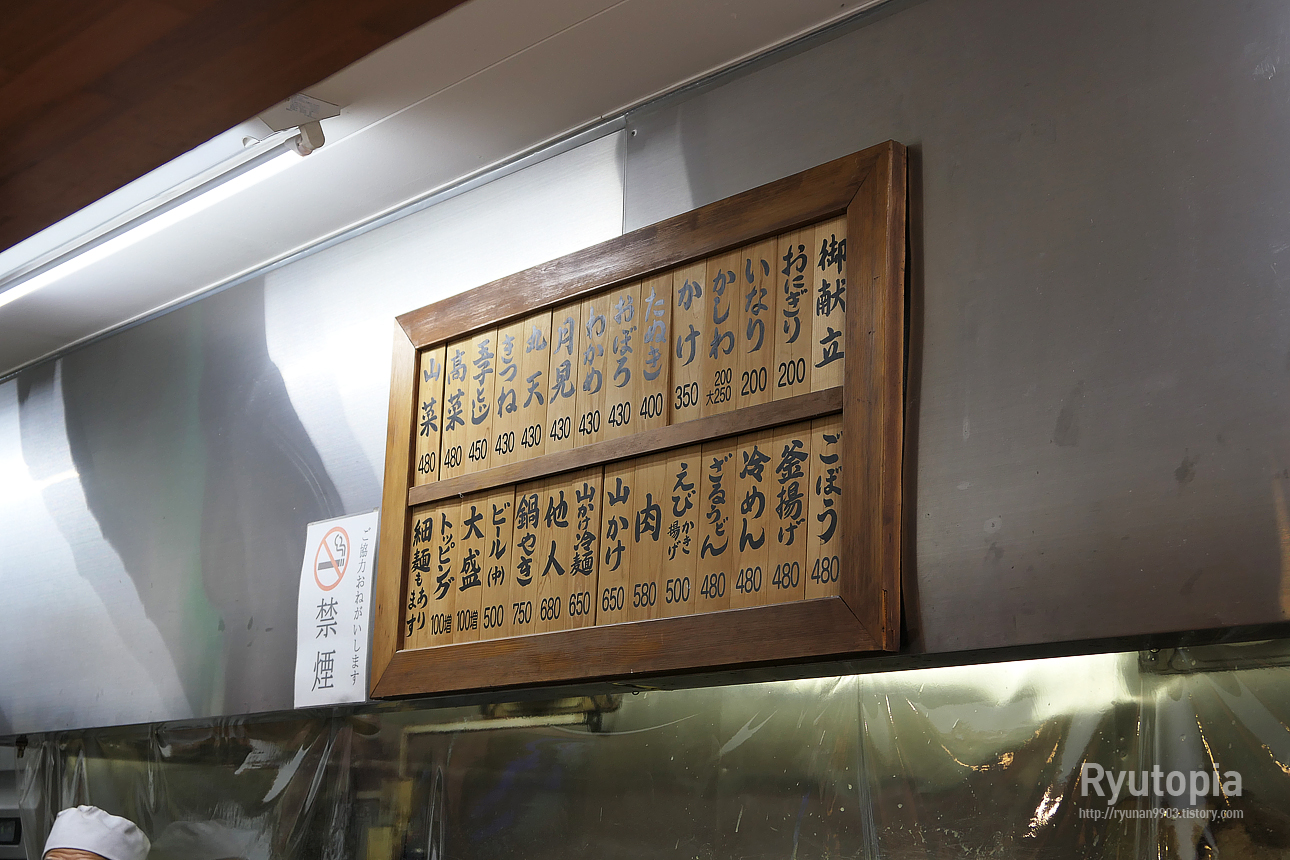 御献立
おにぎり 200
いなり 200
かしわ 200 大250
かけ 350
たぬき 400
おぼろ 430
わかめ 430
月見 430
丸天 430
きつね 430
玉子とじ 450
高菜 480
山菜 480
ごぼう 480
釜揚げ 480
冷めん 480
ざるうどん 480
えび かき揚げ 500
肉 580
山かけ 650
山かけ冷麺 650
他人 680
鍋やき 750
ビール(中) 500
大盛 100増
トッピング 100増
細麺もあります
ご協力おねがいします
禁煙
Ryutopia
http://ryunan9903.tistory.com